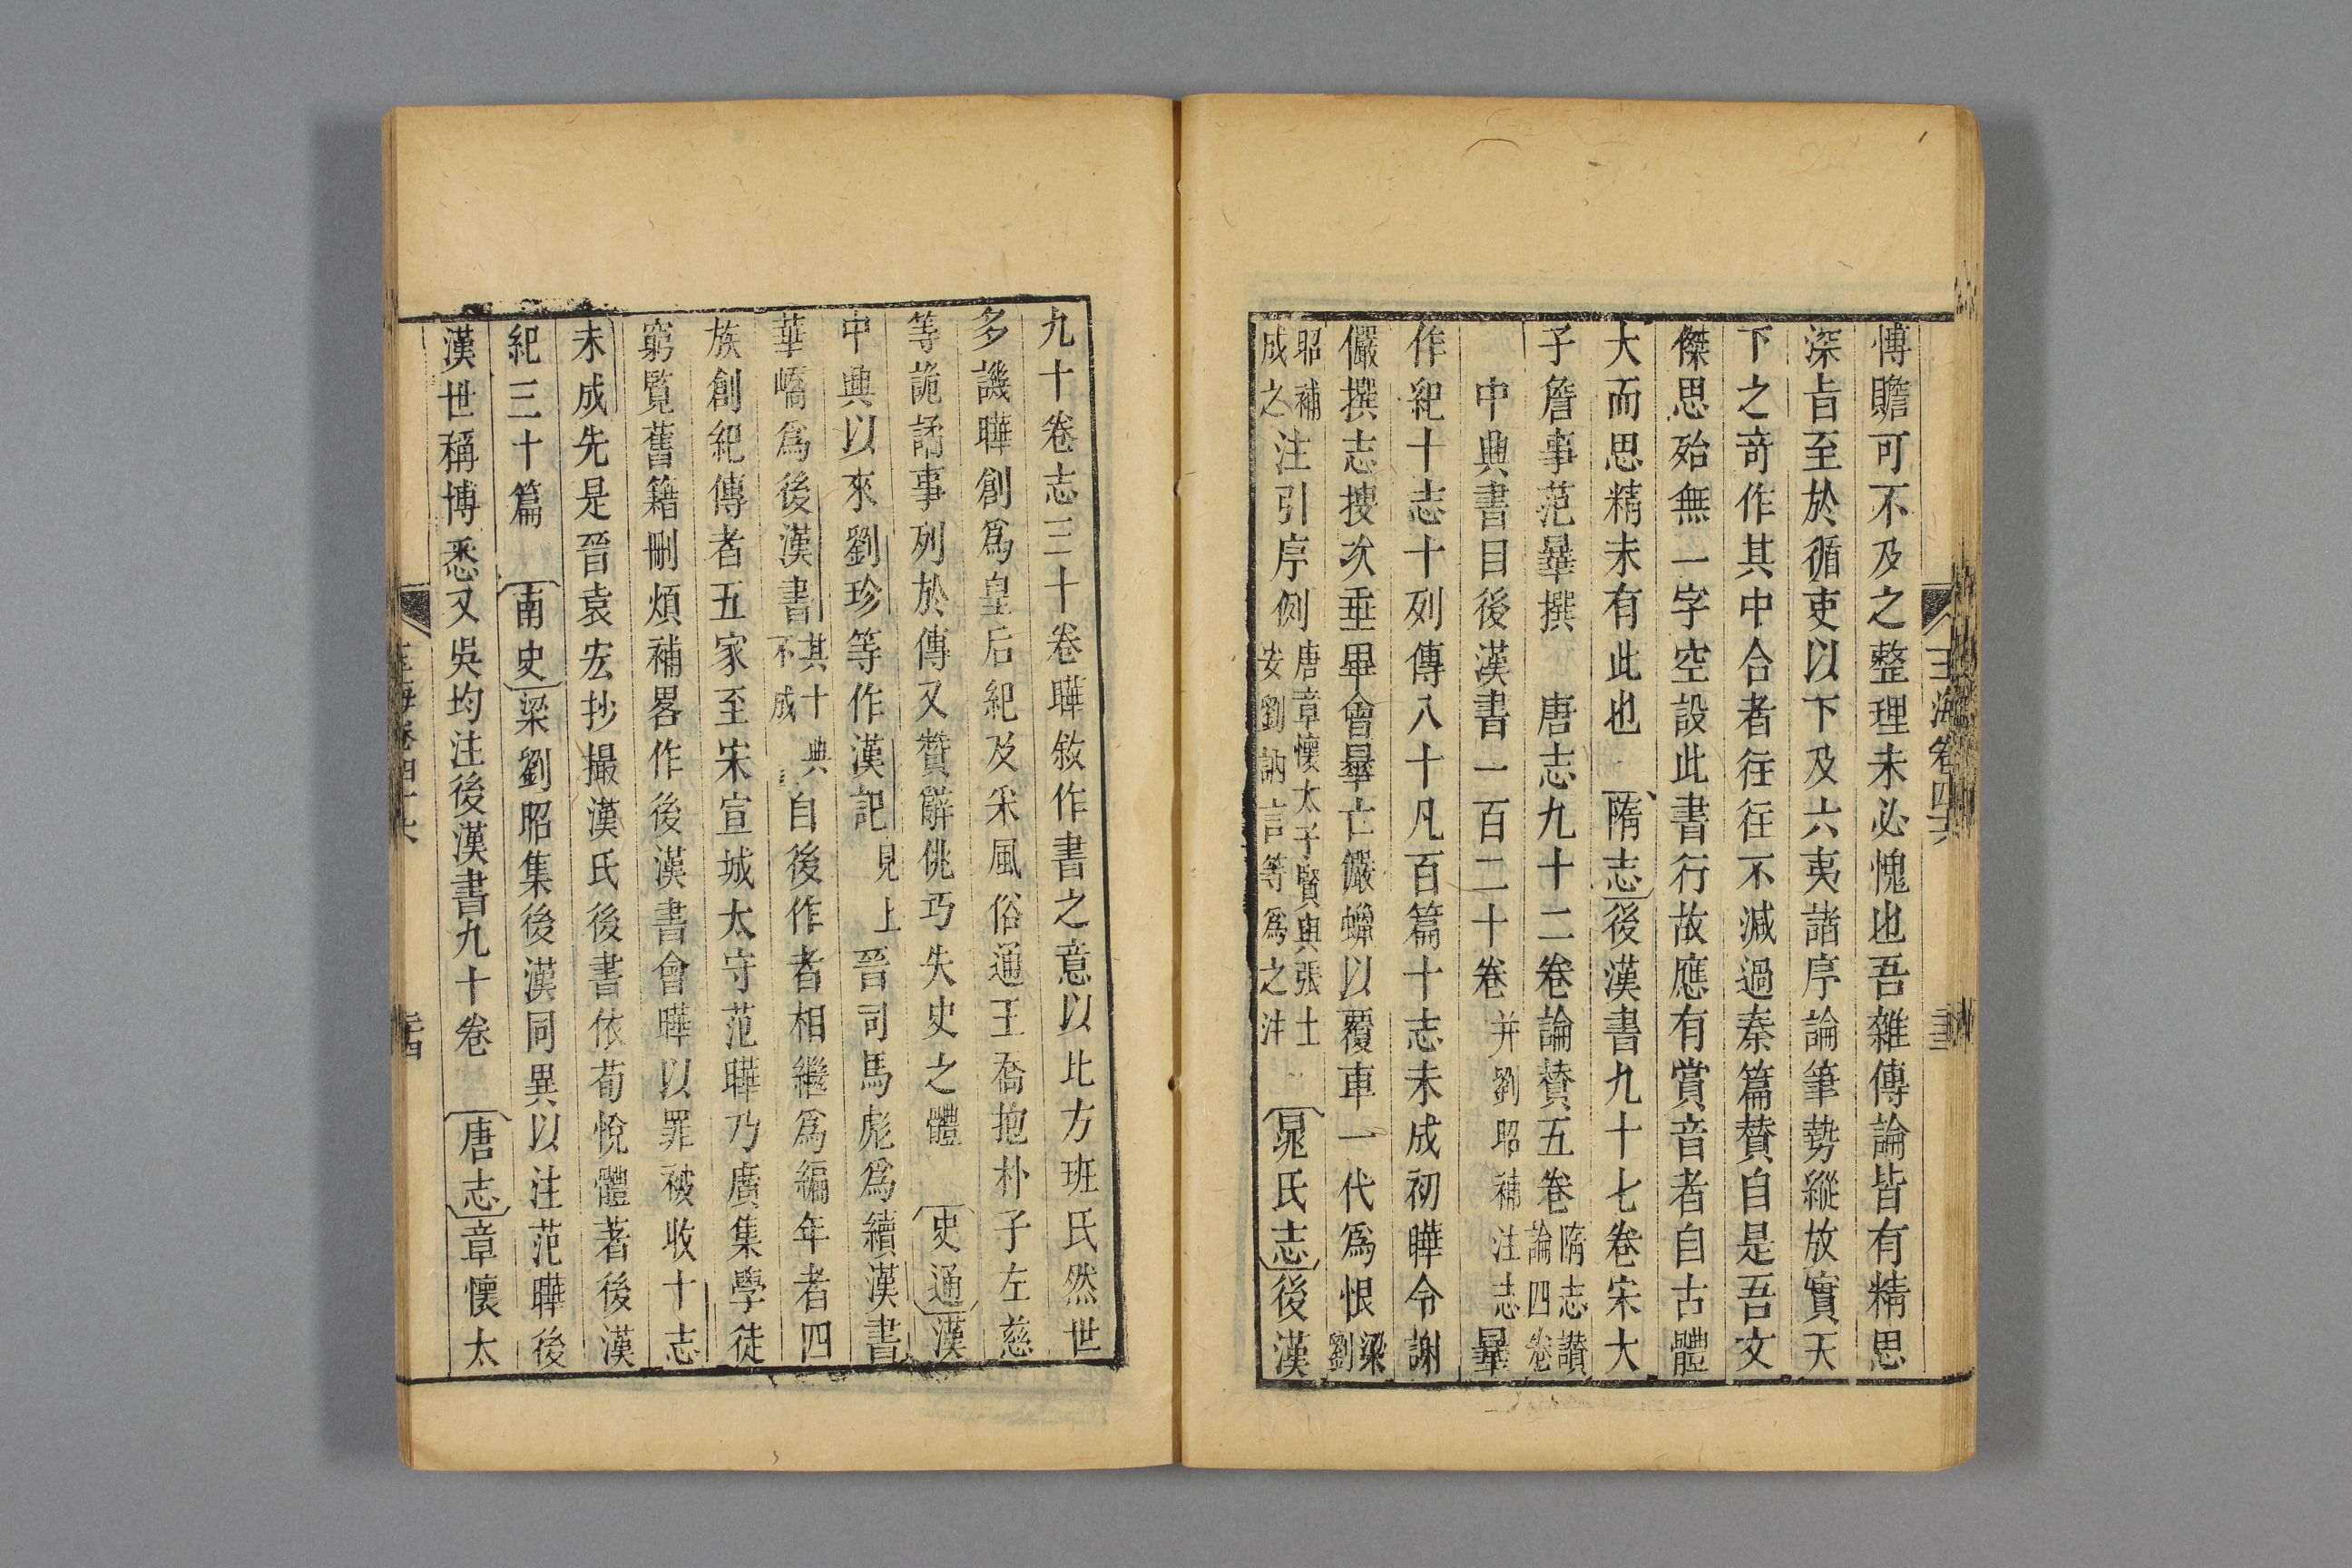 博贍可不及之整理未必愧也吾雜傳論皆有精思
深㫖至於循吏以下及六夷諸序論筆勢縱放實天
下之竒作其中合者徃徃不減過秦篇賛自是吾文
傑思殆無一字空設此書行故應有賞音者自古體
大而思精未有此也 隋志後漢書九十七卷宋大
子詹事范曅撰 唐志九十二卷論賛五卷隋志讃論四卷
中興書目後漢書一百二十卷并劉昭補注志曅
作紀十志十列傳八十凡百篇十志未成初曄令謝
儼撰志捜次垂畢會曅亡儼蠟以覆車一代爲恨梁劉
昭補成之注引序例唐章懷太子賢與張士安劉訥言等爲之注 晁氏志後漢
九十卷志三十卷曄敘作書之意以比方班氏然世
多譏曄創爲皇后紀及采風俗通王喬抱朴子左慈
等詭譎事列於傳又贊辭佻巧失史之體 史通漢
中興以來劉珍等作漢記見上晉司馬彪爲續漢書
華嶠爲後漢書其十典不成自後作者相繼爲編年者四
族創紀傳者五家至宋宣城太守范曄乃廣集學徒
窮覧舊籍刪煩補畧作後漢書會曄以罪被收十志
未成先是晉袁宏抄撮漢氏後書依荀悅體著後漢
紀三十篇 南史梁劉昭集後漢同異以注范曄後
漢世稱博悉又吳均注後漢書九十卷 唐志章懷太